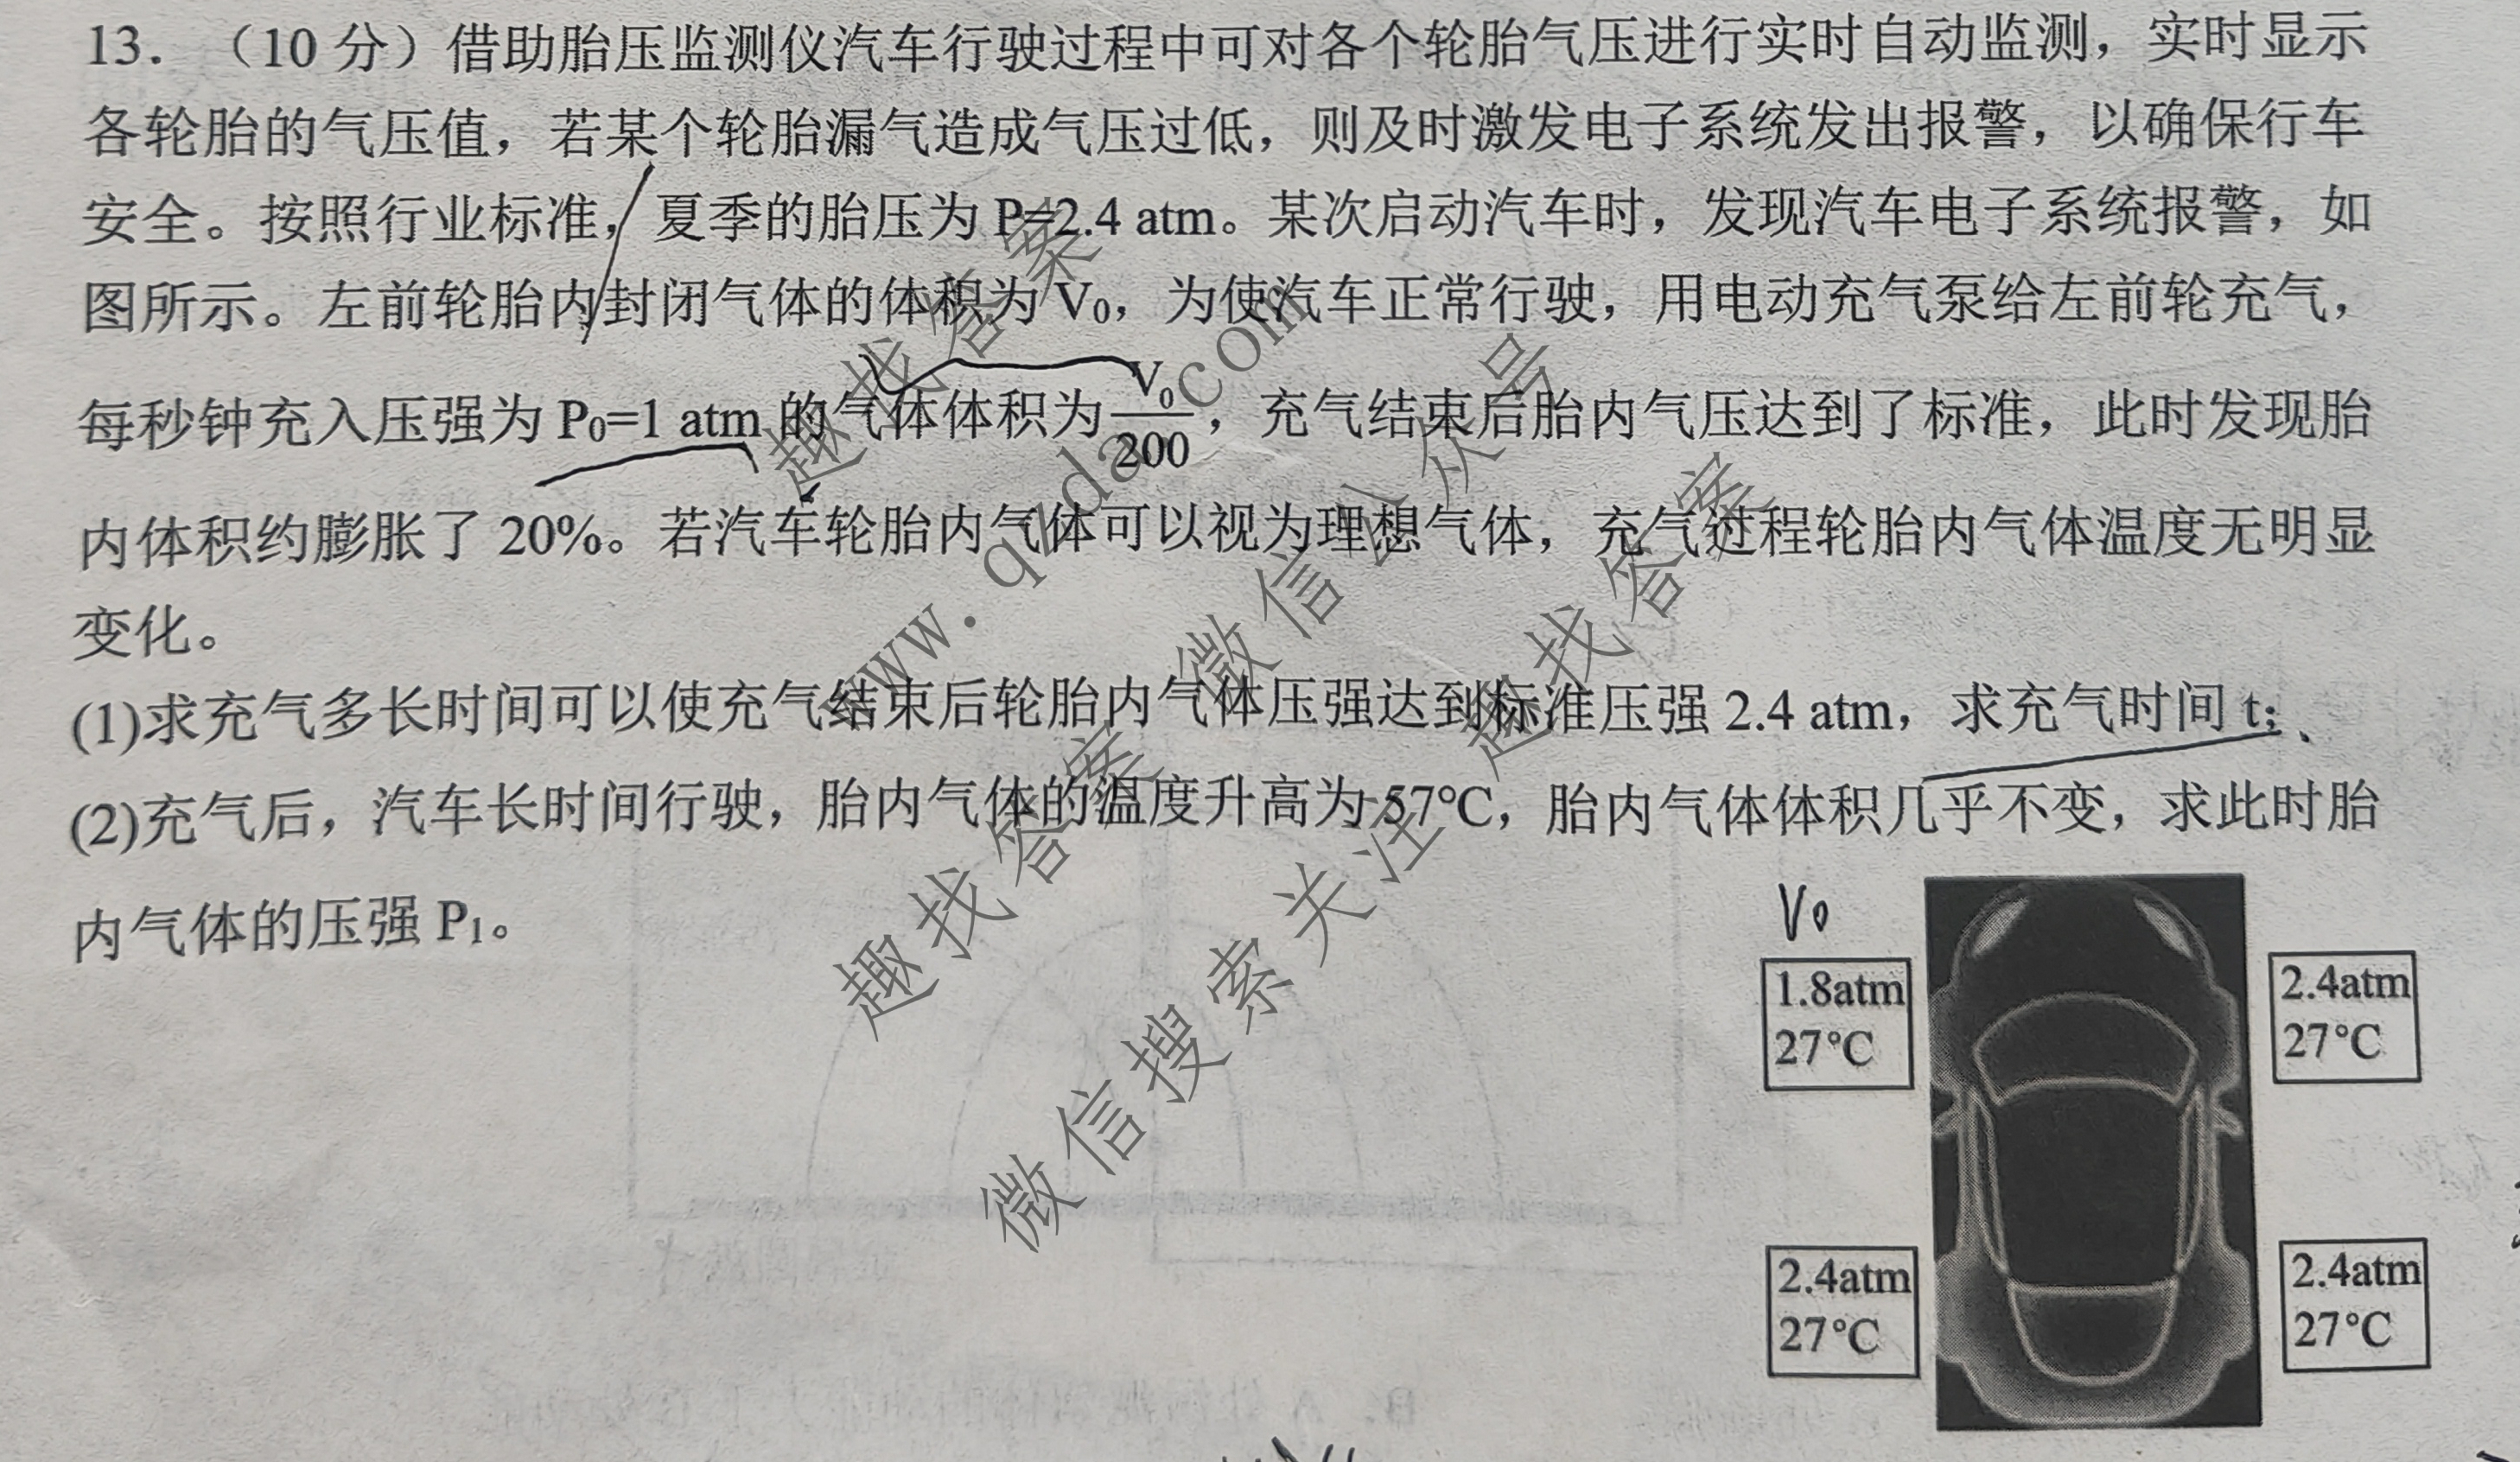 13. （10 分）借助胎压监测仪汽车行驶过程中可对各个轮胎气压进行实时自动监测，实时显示
各轮胎的气压值，若某个轮胎漏气造成气压过低，则及时激发电子系统发出报警，以确保行车
安全。按照行业标准，夏季的胎压为 P=2.4 atm。某次启动汽车时，发现汽车电子系统报警，如
图所示。左前轮胎内封闭气体的体积为 V₀，为使汽车正常行驶，用电动充气泵给左前轮充气，
每秒钟充入压强为 P₀=1 atm 的气体体积为 V₀/200，充气结束后胎内气压达到了标准，此时发现胎
内体积约膨胀了 20%。若汽车轮胎内气体可以视为理想气体，充气过程轮胎内气体温度无明显
变化。
(1)求充气多长时间可以使充气结束后轮胎内气体压强达到标准压强 2.4 atm，求充气时间 t；
(2)充气后，汽车长时间行驶，胎内气体的温度升高为 57℃，胎内气体体积几乎不变，求此时胎
内气体的压强 P₁。
V₀
1.8atm
27℃
2.4atm
27℃
2.4atm
27℃
2.4atm
27℃
趣找答案
www.qzda.com
微信公众号
趣找答案
趣找答案
微信搜索关注